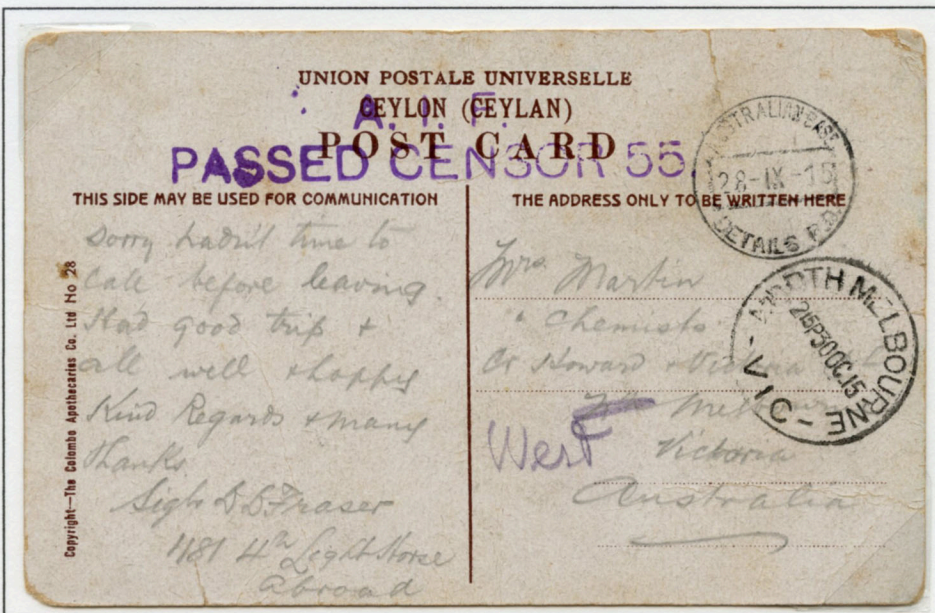 UNION POSTALE UNIVERSELLE
A. I. F.
CEYLON (CEYLAN)
POST CARD
PASSED CENSOR 55.
AUSTRALIAN BASE
28-IX-15
DETAILS P.O.
THIS SIDE MAY BE USED FOR COMMUNICATION
THE ADDRESS ONLY TO BE WRITTEN HERE
Copyright—The Colombo Apothecaries Co. Ltd No 28
Sorry hadn't time to
call before leaving.
Had good trip &
all well & happy
Kind Regards & many
thanks
Sigr D.B. Fraser
1181 4th Light Horse
abroad
Mrs. Martin
Chemists
Cr Howard & Victoria
Melbourne
West
Victoria
Australia
NORTH MELBOURNE
30OC15
- VIC -